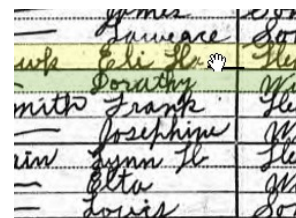 James
Lawrence So
Eli Ha
Dorathy Wi
mith Frank He
Josephine W
Lynn H He
Elta W
Louis So